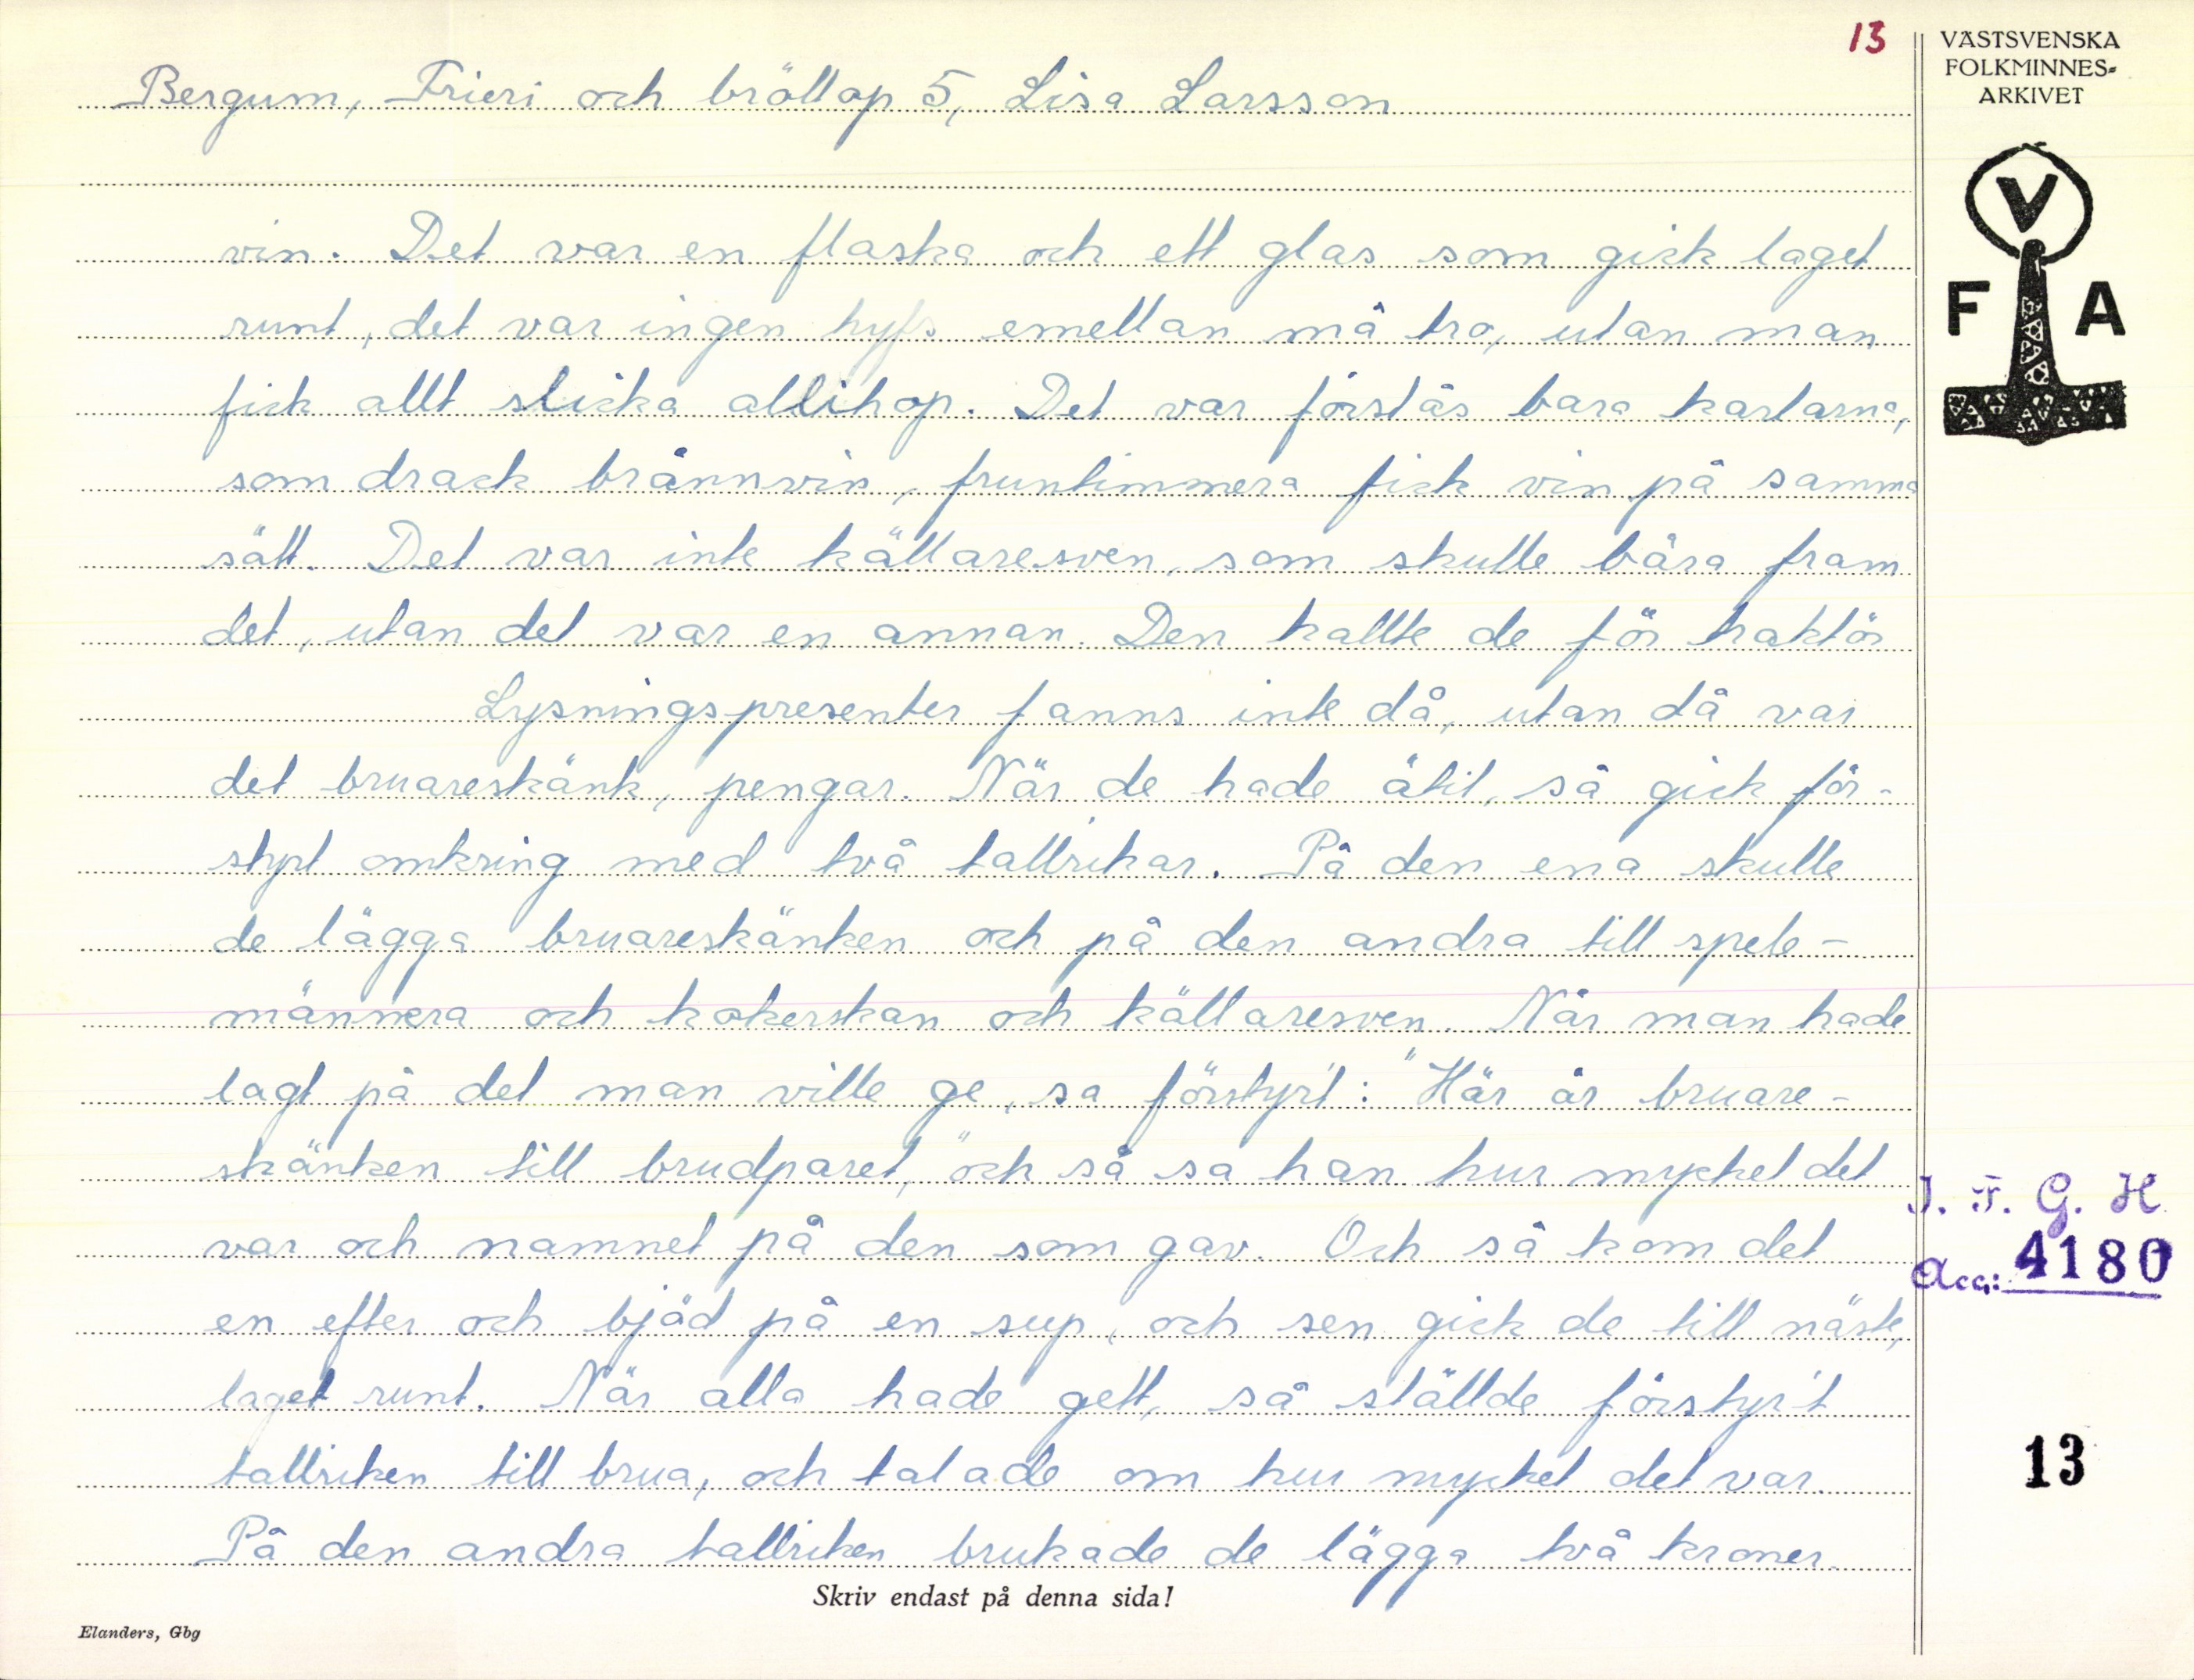 13
VÄSTSVENSKA
FOLKMINNES-
ARKIVET
V
F A
Bergum, Frieri och bröllop 5, Lisa Larsson
vin. Det var en flaska och ett glas som gick laget
runt, det var ingen hyfs emellan må tro, utan man
fick allt slicka allihop. Det var förstås bara karlarna,
som drack brännvin, fruntimmera fick vin på samma
sätt. Det var inte källaresven, som skulle bära fram
det, utan det var en annan. Den kallte de för traktör
Lysningspresenter fanns inte då, utan då var
det bruareskänk, pengar. När de hade ätit, så gick för-
styrt omkring med två tallrikar. På den ena skulle
de lägga bruareskänken och på den andra till spele-
männera och kokerskan och källaresven. När man hade
lagt på det man ville ge, sa förstyr't: "Här är bruare-
skänken till brudparet," och så sa han hur mycket det
var och namnet på den som gav. Och så kom det
en efter och bjäd på en sup, och sen gick de till näste,
laget runt. När alla hade gett, så ställde förstyr't
tallriken till brua, och talade om hur mycket det var.
På den andra tallriken brukade de lägga två kroner.
J. F. G. H
Acc: 4180
13
Skriv endast på denna sida!
Elanders, Gbg